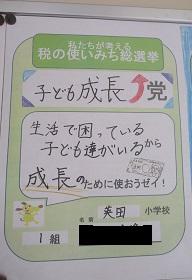 私たちが考える
税の使いみち総選挙
子ども成長党
生活で困っている
子ども達がいるから
成長のために使おうゼイ!
英田 小学校
1組 名前